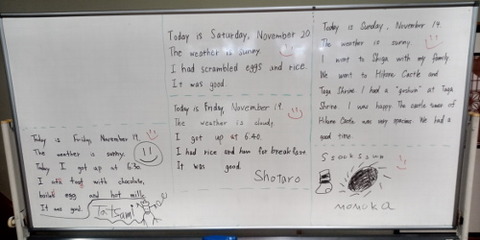 Today is Saturday, November 20
The weather is sunny.
I had scrambled eggs and rice
It was good.
Today is Friday, November 19.
The weather is cloudy.
I got up at 6:40.
I had rice and ham for breakfast
It was good.
Shotaro
Today is Friday, November 19.
The weather is sunny.
Today I got up at 6:30.
I ate toast with chocolate,
boiled egg and hot milk
It was good.
Today is Sunday, November 14.
The weather is sunny.
I went to Shiga with my family.
We went to Hikone Castle and
Taga Shrine. I had a "goshuin" at Taga
Shrine. I was happy. The castle tower of
Hikone Castle was very spacious. We had a
good time.
momoka